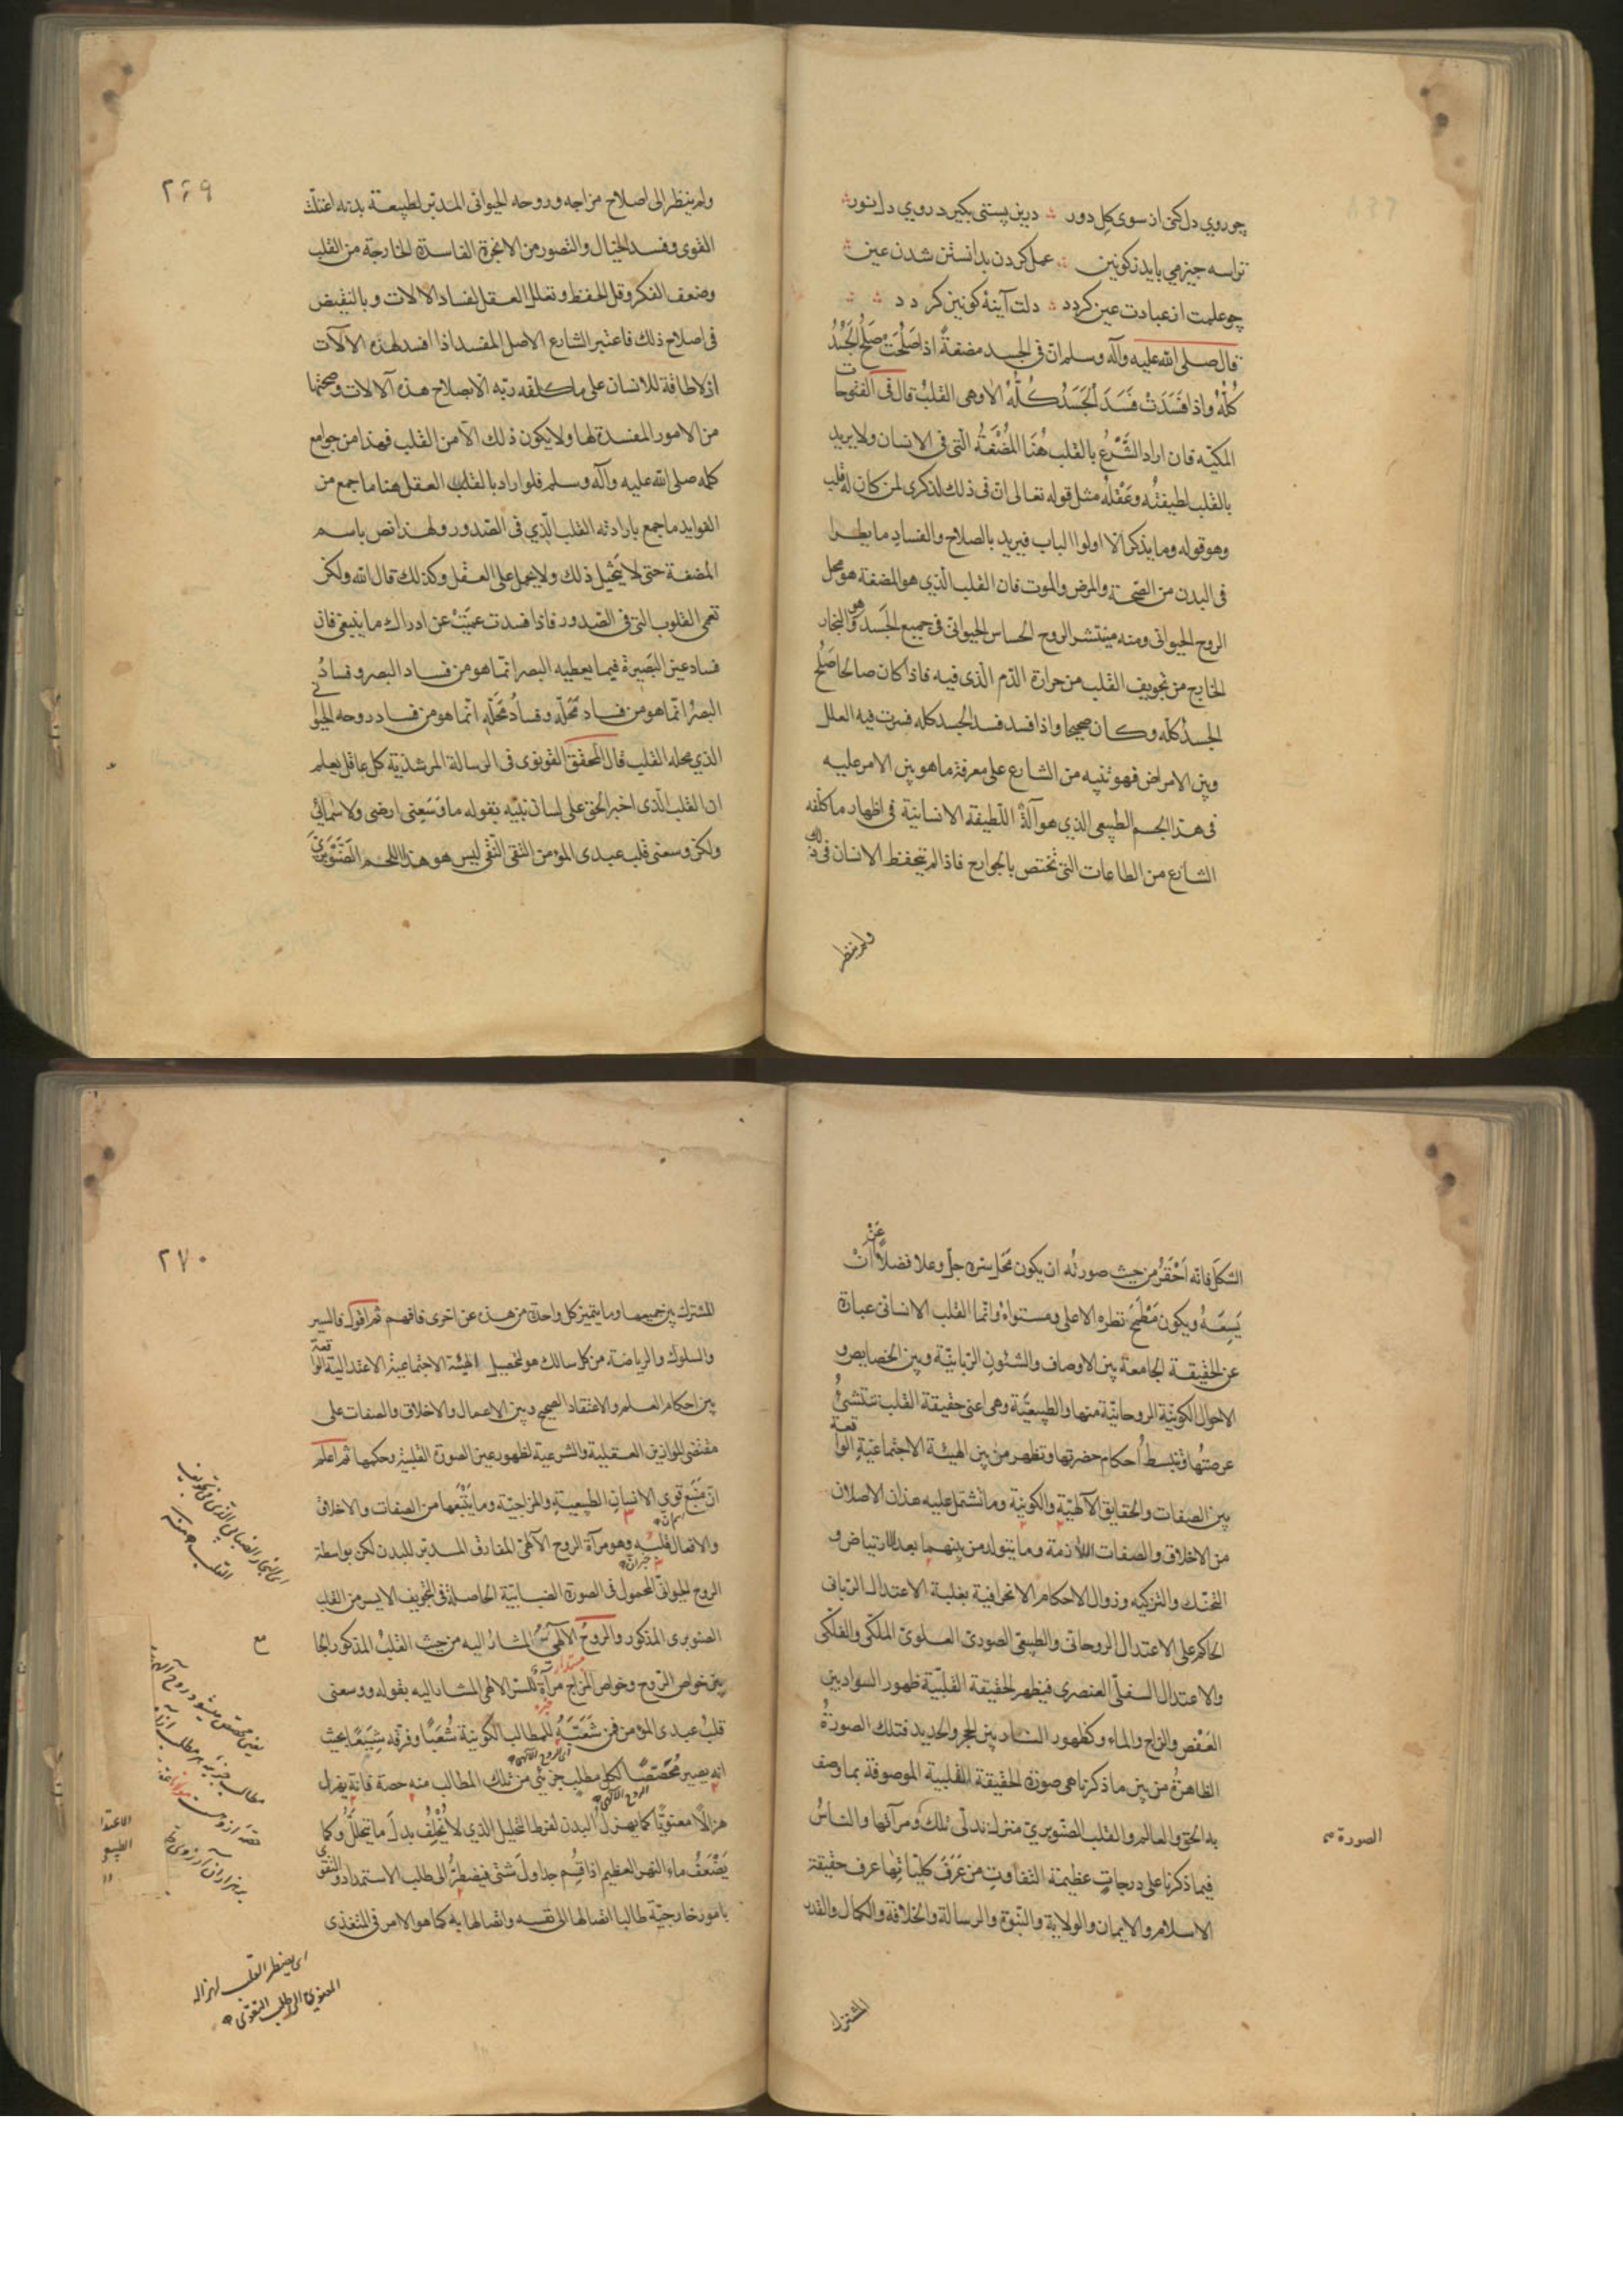 چو روي دل كنى از سوى كل دور درين پستى بكير د روي دل نور
ترا سه چيز مي بايد ز كونين عمل كردن بدانستن شدن عين
چو علمت از عبادت عين كردد دلت آينهٔ كونين كر د د
قال صلى الله عليه وآله وسلم ان فى الجسد مضغةً اذا صَلُحَت صَلُحَ الجَسَدُ
كُلُّهُ واذا فَسَدَتْ فَسَدَ الجَسَدُ كُلُّهُ الا وهى القلبُ قال فى الفتوحات
المكيّه فان اراد الشَّرْعُ بالقلب هُنَا المُضْغَةُ الّتى فى الانسان ولا يريد
بالقلب لطيفتُه وعَقْلُه مثل قوله تعالى ان فى ذلك لذكرى لمن كان له قلب
وهو قوله وما يذكر الا اولوا الباب فيريد بالصلاح والفساد ما يطرا
فى البدن من الصّحة والمرض والموت فان القلب الّذي هو المضغة هو محل
الروح الحيوانى ومنه ينتشر الروح الحساس الحيوانى فى جميع الجَسَد وهو البخار
الخارج من تجويف القلب من حرارة الدّم الّذى فيه فاذا كان صالحا صَلُحَ
الجسدُ كلّه وكان صحيحا واذا فسد فسد الجسد كله فسرت فيه العلل
وبين الامراض فهو تنبيه من الشارع على معرفة ما هو بين الامر عليه
فى هذ الجسم الطبيعى الذي هو آلةُ اللّطيفة الانسانيّة فى اظهار ما كلّفه
الشارع من الطاعات التى تختص بالجوارح فاذا لم يتحفظ الانسان فى ذلك
ولم ينظر
٢٦٩
ولم ينظر الى اصلاح مزاجه وروحه الحيوانى المدبّر لطبيعة بدنه اعتلت
القوى وفسد الخيال والتصور من الابخرة الفاسدة الخارجة من القلب
وضعف الفكر وقل الحفظ وتعلل العقل لفساد الالات وبالنقيض
فى اصلاح ذلك فاعتبر الشارع الاصل المفسد اذا افسد لهذه الآلات
اذ لا طاقة للانسان على ما كلفه ربّه الا بصلاح هذه الالات وصحتها
من الامور المفسدة لها ولا يكون ذلك الا من القلب فهذا من جوامع
كلمه صلى الله عليه وآله وسلم فلو اراد بالقلب العقل هنا ما جمع من
الفوايد ما جمع بارادته القلب الّذي فى الصّدور ولهذا نص باسم
المضغة حتى لا يتخيل ذلك ولا يحمل على العقل وكذلك قال الله ولكن
تعمى القلوب التى فى الصّدور فاذا فسدت عميَتْ عن ادراك ما ينبغى فان
فساد عين البَصِيرة فيما يعطيه البصر انّما هو من فساد البصر وفسادُ
البصرُ انّما هو من فساد مَحَلّه وفسادُ مَحَلّه انّما هو من فساد روحه الحيوانى
الذي محله القلب قال المحقق القونوى فى الرسالة المرشدية كل عاقل يعلم
ان القلب الّذى اخبر الحق على لسان نبيّه بقوله ما وَسَعَنى ارضى ولا سمائى
ولكن وسعنى قلب عبدى المؤمن التقى النّقى ليس هو هذا اللحم الصَّنَوْبَرىَّ
الشكل فانه اَحْقَرُ من حيث صورتُه ان يكون مَحَل سره جل وعلا فضلاً عَنْ اَنْ
يَسِعَه ويكون مَطْمَحَ نظره الاعلى ومستواهُ وانما القلب الانسانى عبارة
عن الحقيقة الجامعة بين الاوصاف والشئون الرّبانيّة وبين الخصايص و
الاحوال الكونيّة الروحانيّة منها والطبيعيّة وهى اعنى حقيقة القلب تنتشئُ
عرصتُها وتنبسطُ احكام حضرتها وتظهر من بين الهيئة الاجتماعيّةِ الواقعة
بين الصفات والحقايق الآلهيّة والكونيّة وما تشتمل عليه هذان الاصلان
من الاخلاق والصفات اللازمة وما يتولد من بينهما بعد الارتياض و
التحنّك والتزكيه وزوال الاحكام الانحرافية بغلبة الاعتدال الرّبانى
الحاكم على الاعتدال الروحانى والطبيعى الصورىّ العلوىّ الملكّى والفلكّى
والاعتدال السفلّى العنصرى فيظهر لحقيقة القلبيّة ظهور السواد بين
العَفْص والزاج والماء وكظهور النار بين الحجر والحديد فتلك الصورةُ
الظاهرةُ من بين ما ذكرنا هى صورة الحقيقة القلبية الموصوفة بما وصف
به الحق والعالم والقلب الصّنوبريّ منزل تدلّى تلك ومرآتها والناسُ
الصورة صح
فيما ذكرنا على درجاتٍ عظيمة التفاوتِ من عَرَفَ كليّاتِها عرف حقيقة
الاسلام والايمان والولاية والنّبوة والرسالة والخلافة والكمال والقدر
المشترك
٢٧٠
المشترك بين جميعها وما يتميز كل واحدة من هذه عن اخرى فافهم ثم اقول فالسير
والسلوك والرياضة من كل سالك هو لتحصيل الهيئة الاجتماعية الاعتدالية الواقعة
بين احكام العلم والاعتقاد الصحيح وبين الاعمال والاخلاق والصفات على
مقتضى الموازين العقلية والشرعية لظهور عين الصورة القلبيّة وحكمها ثم اعلم
انّ مَنبَع قوى الانسان الطبيعيةِ والمزاجيّة وما يَتْبَعُها من الصفات والاخلاق
والافعال قلبُه وهو مرآة الروح الآلهىّ المفارق المدبّر للبدن لكن بواسطة
الروح الحيوانّى المحمول فى الصورة الضبابيّة الحاصلة فى التّجويف الايسر من القلب
الصنوبرى المذكور والروحُ الالهىّ المشارُ اليه من حيث القلب المذكور الجامع
بين خواص الرّوح وخواص المزاج مرآة للسّر الالهى المشار اليه بقوله ووسعنى
قلبُ عبدى المؤمن فمن شَعَّبَهُ للمطالب الكونية شُعَبًا وفرقه شِيَعًا بحيث
انه يصير مُحَصّصًا لكل مطلب جزئى من تلك المطالب منه حصة فانه يهزل
هزالًا معنويًا كما يهزلُ البدن لفرط التحليل الذي لا يُخْلِفُ بدلَ ما يتحلَّلُ وكما
يَضْعَفُ ماء النهر العظيم اذا قُسِم جداولَ شتى فيضطرُّ الى طلب الاستمداد والتقوى
بامور خارجيّة طالبا اتصالها الى نفسه واتصالها به كما هو الامر فى المتغذى
اى البخار الضبابى الذى فى تجويف
القلب
اى يضطر القلب لهزاله
المعنوى الى طلب التقوى